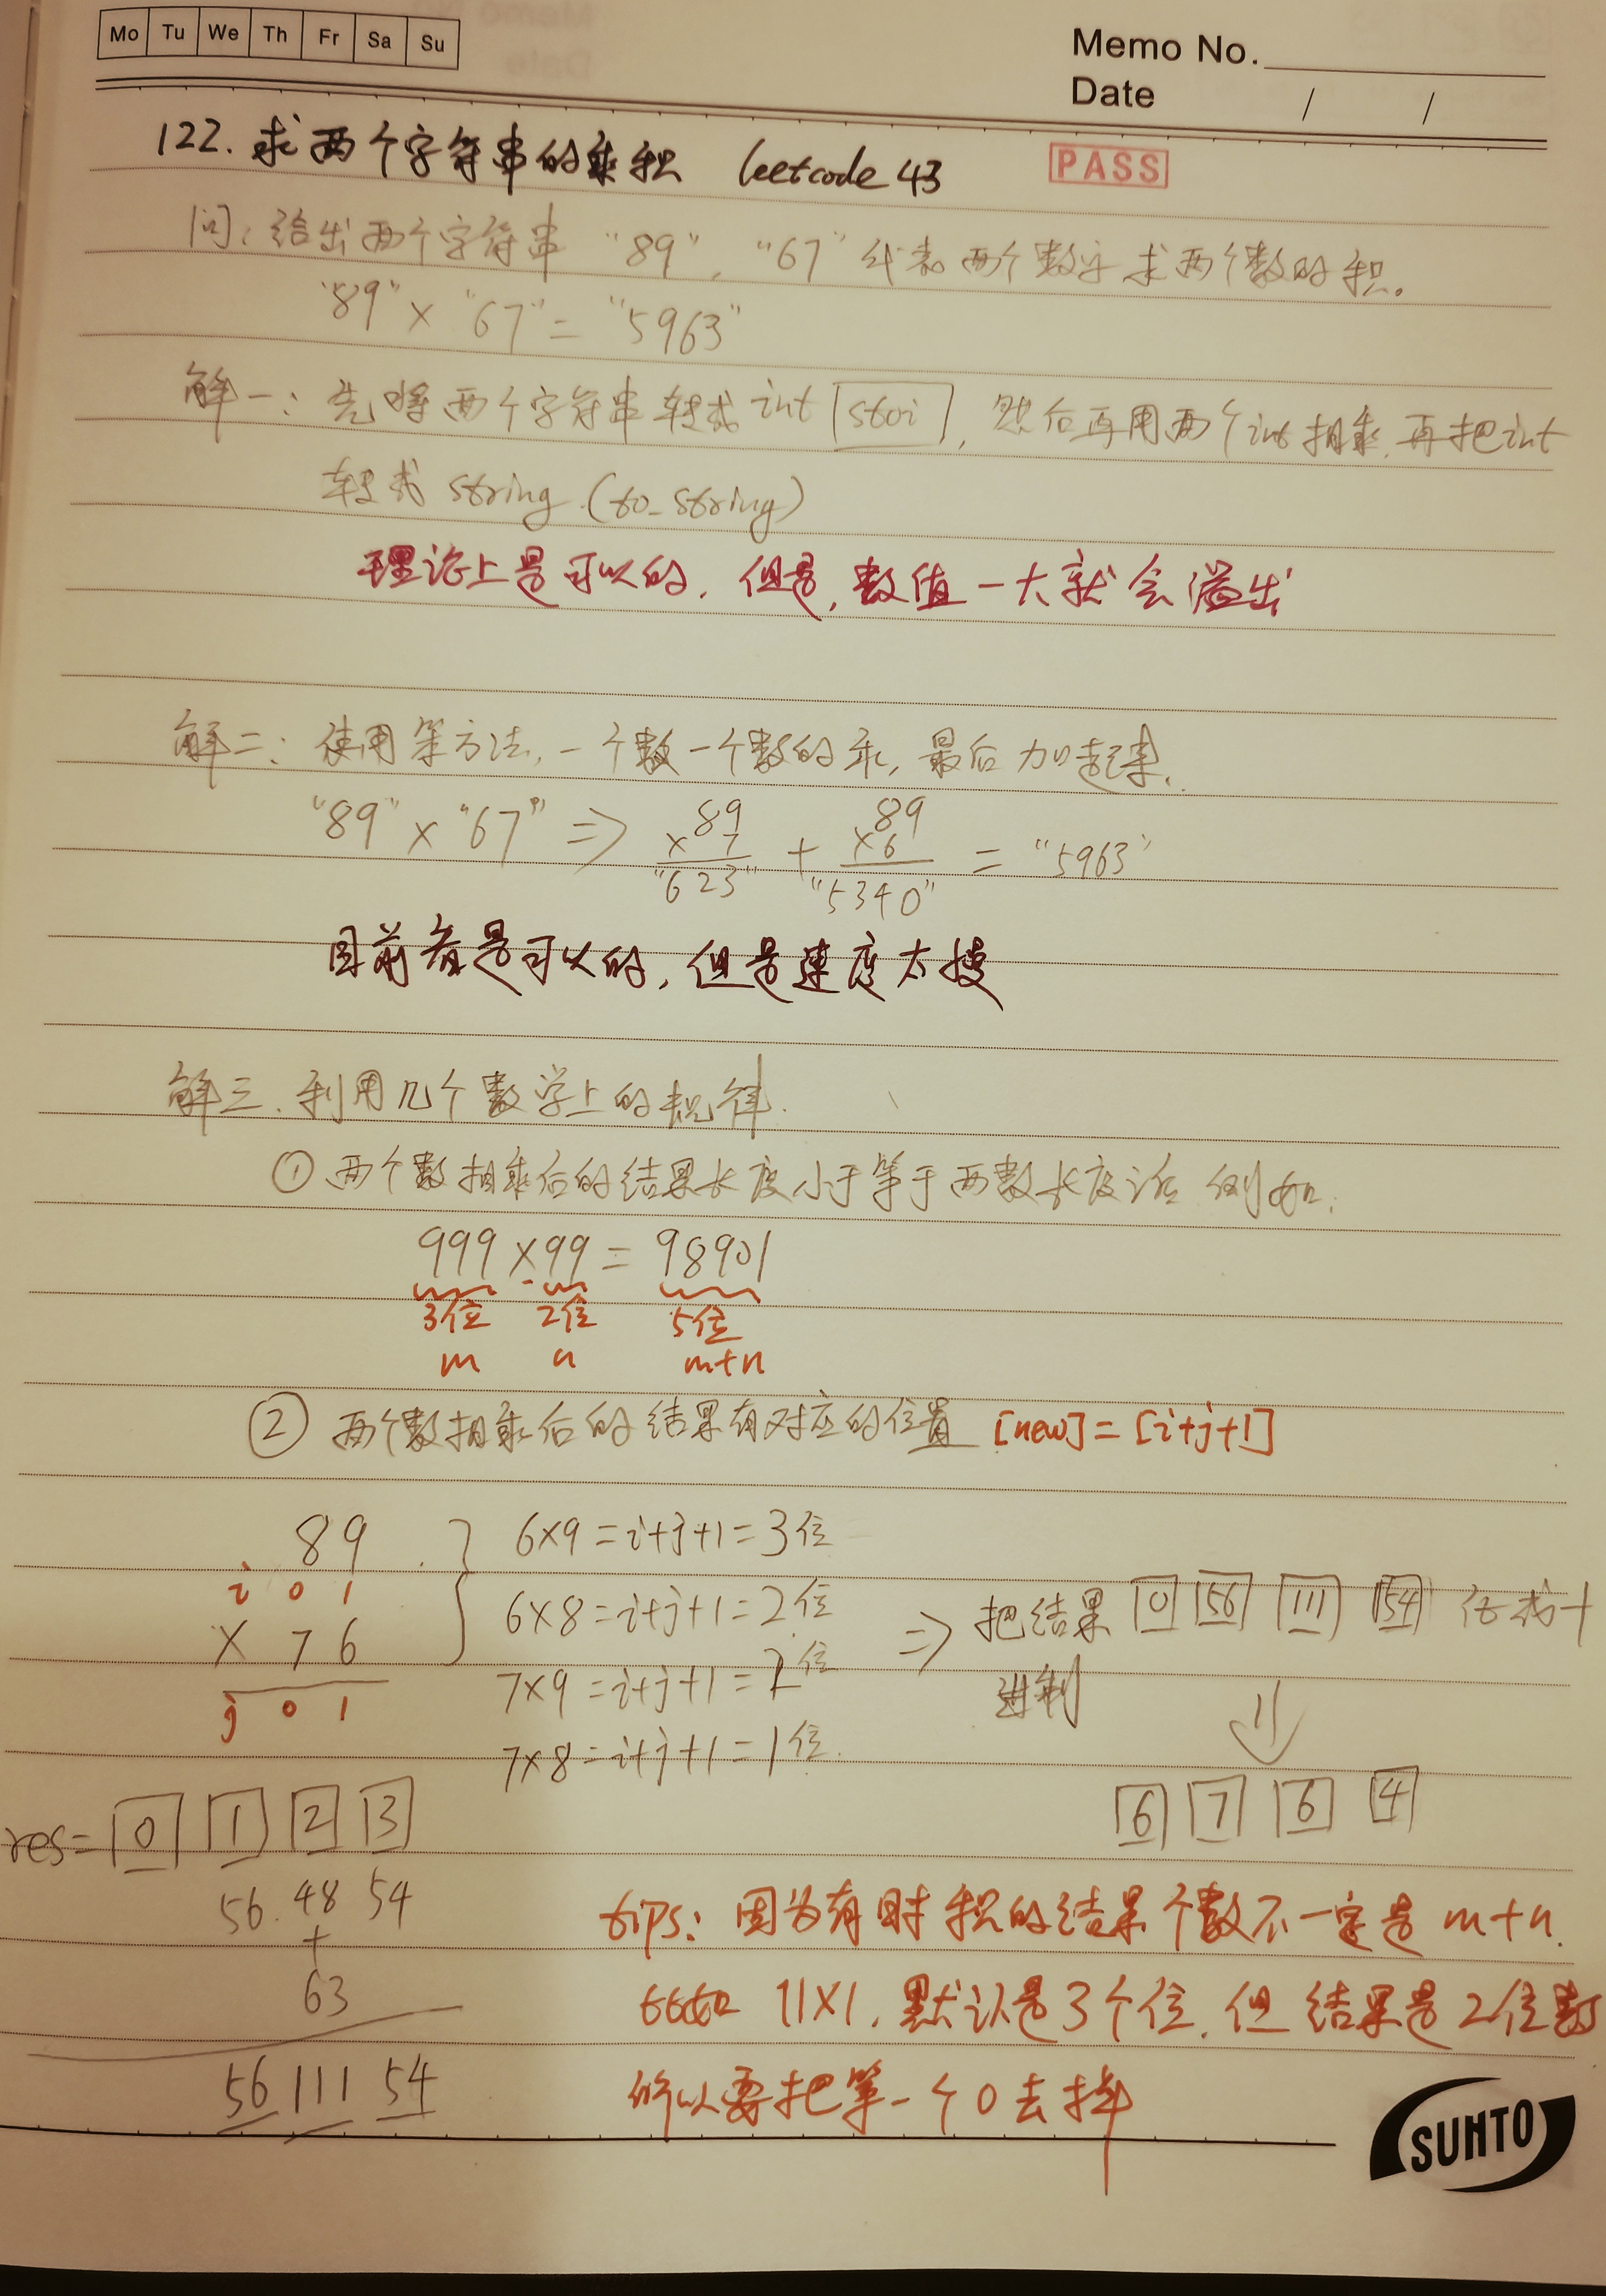 Mo Tu We Th Fr Sa Su
Memo No.
Date / /
122. 求两个字符串的乘积 leetcode 43 PASS
问: 给出两个字符串 "89", "67" 代表两个数字求两个数的积。
"89" × "67" = "5963"
解一: 先将两个字符串转成 int stoi, 然后再用两个int相乘, 再把int
转成 string.(to_string)
理论上是可以的, 但是, 数值一大就会溢出
解二: 使用笨方法, 一个数一个数的乘, 最后加起来.
"89" × "67" ⇒ 89 ×7 "623" + 89 ×6 "5340" = "5963"
目前看是可以的, 但是速度太慢
解三. 利用几个数学上的规律.
① 两个数相乘后的结果长度小于等于两数长度 例如:
999 × 99 = 98901
3位 2位 5位
m n m+n
② 两个数相乘后的结果有对应的位置 [new] = [i+j+1]
89
i 0 1
× 76
j 0 1
6×9 = i+j+1 = 3位
6×8 = i+j+1 = 2位
7×9 = i+j+1 = 2位
7×8 = i+j+1 = 1位.
⇒ 把结果 0 56 111 54 十
进制
⇓
6 7 6 4
res= 0 1 2 3
56. 48 54
+
63
56 111 54
tips: 因为有时积的结果个数不一定是 m+n.
11×1, 默认是3个位, 但结果是2位数
所以要把第一个0去掉
SUHTO